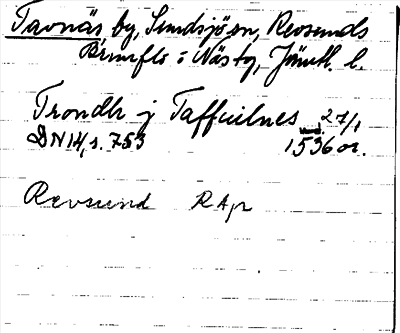 Tavnäs by, Sundsjö sn, Revsunds
Brunflo i Näs tg, Jämtl. l.
Trondh j Taffuilnes 27/1
DN 14, s. 753 1536 or.
Revsund RAp